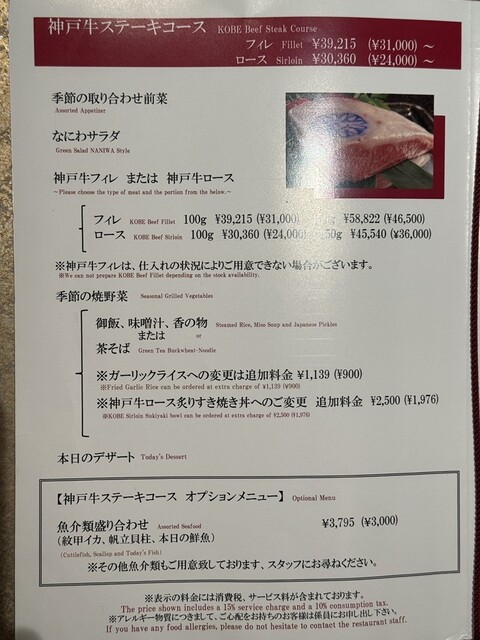 神戸牛ステーキコース KOBE Beef Steak Course
フィレ Fillet ¥39,215 (¥31,000) ～
ロース Sirloin ¥30,360 (¥24,000) ～
季節の取り合わせ前菜
Assorted Appetizer
なにわサラダ
Green Salad NANIWA Style
神戸牛フィレ または 神戸牛ロース
～Please choose the type of meat and the portion from the below.～
フィレ KOBE Beef Fillet 100g ¥39,215 (¥31,000) ¥58,822 (¥46,500)
ロース KOBE Beef Sirloin 100g ¥30,360 (¥24,000) 50g ¥45,540 (¥36,000)
※神戸牛フィレは、仕入れの状況によりご用意できない場合がございます。
※We can not prepare KOBE Beef Fillet depending on the stock availability.
季節の焼野菜 Seasonal Grilled Vegetables
御飯、味噌汁、香の物 Steamed Rice, Miso Soup and Japanese Pickles
または or
茶そば Green Tea Buckwheat-Noodle
※ガーリックライスへの変更は追加料金 ¥1,139 (¥900)
※Fried Garlic Rice can be ordered at extra charge of ¥1,139 (¥900)
※神戸牛ロース炙りすき焼き丼へのご変更 追加料金 ¥2,500 (¥1,976)
※KOBE Sirloin Sukiyaki bowl can be ordered at extra charge of ¥2,500 (¥1,976)
本日のデザート Today's Dessert
【神戸牛ステーキコース オプションメニュー】 Optional Menu
魚介類盛り合わせ Assorted Seafood ¥3,795 (¥3,000)
(紋甲イカ、帆立貝柱、本日の鮮魚)
(Cuttlefish, Scallop and Today's Fish)
※その他魚介類もご用意致しております、スタッフにお尋ねください。
※表示の料金には消費税、サービス料が含まれております。
The price shown includes a 15% service charge and a 10% consumption tax.
※アレルギー物質につきまして、ご心配をお持ちのお客様は係員にお申し出し下さい。
If you have any food allergies, please do not hesitate to contact the restaurant staff.